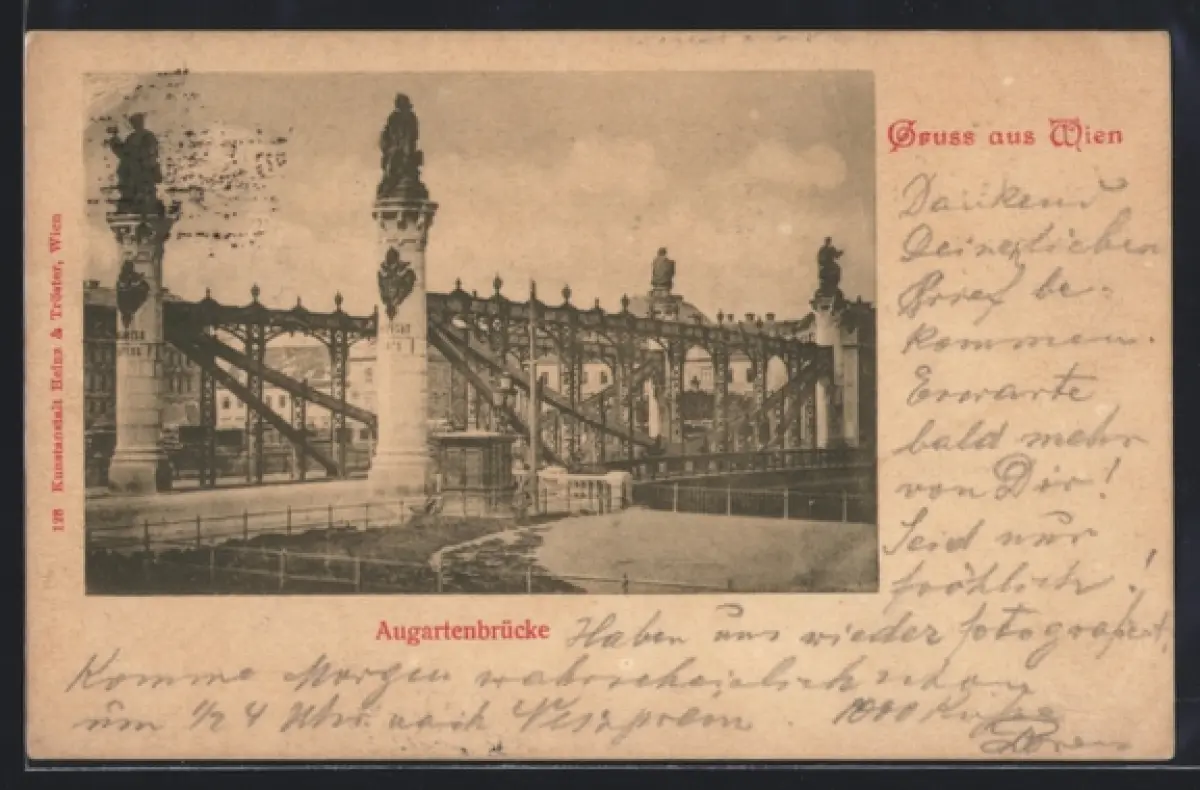 Gruss aus Wien
Dankend
Deinen lieben
Brief be-
kommen.
Erwarte
bald mehr
von Dir!
Seid nur
fröhlich!
Augartenbrücke
Haben uns wieder fotografiert,
Komme Morgen wahrscheinlich schon
um 1/2 4 Uhr nach Veszprem. 1000 Küsse
128 Kunstanstalt Heinz & Tröster, Wien